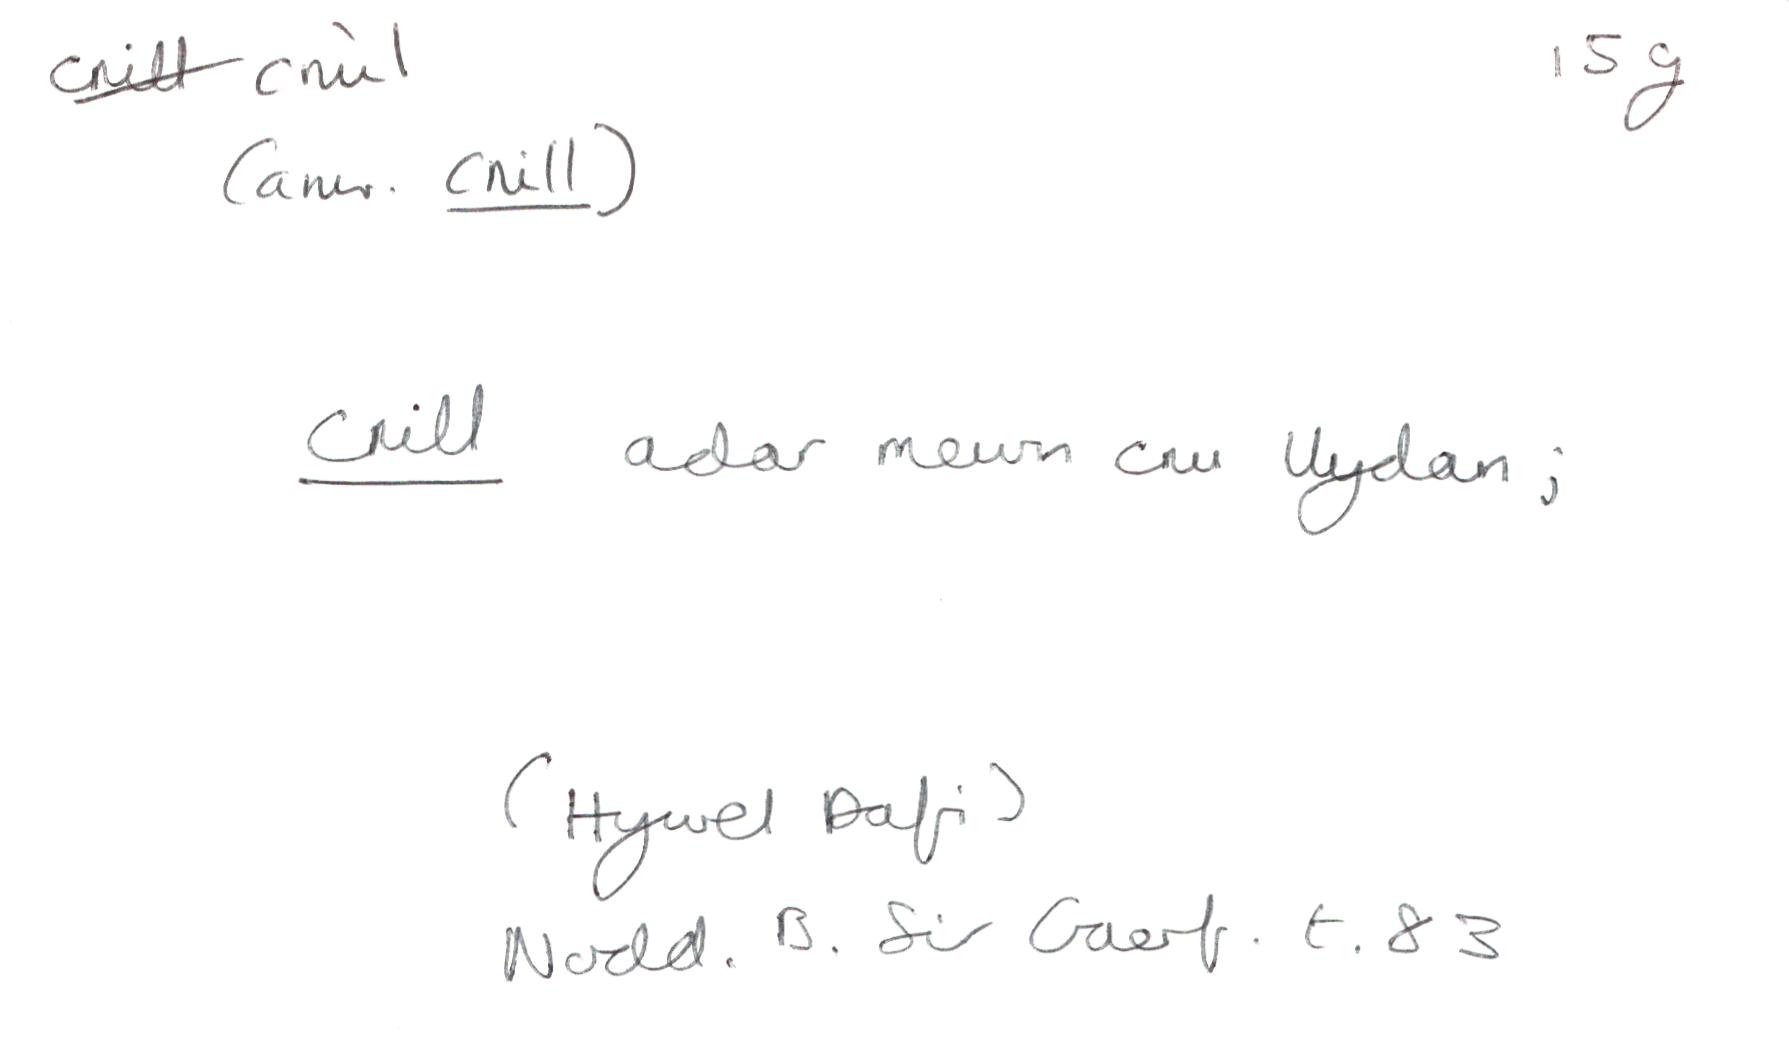 cnill cnùl 15g
(amr. cnill)
Cnill adar mewn cnu llydan;
(Hywel Dafi)
Nodd. B. Sir Gaerf. t. 83